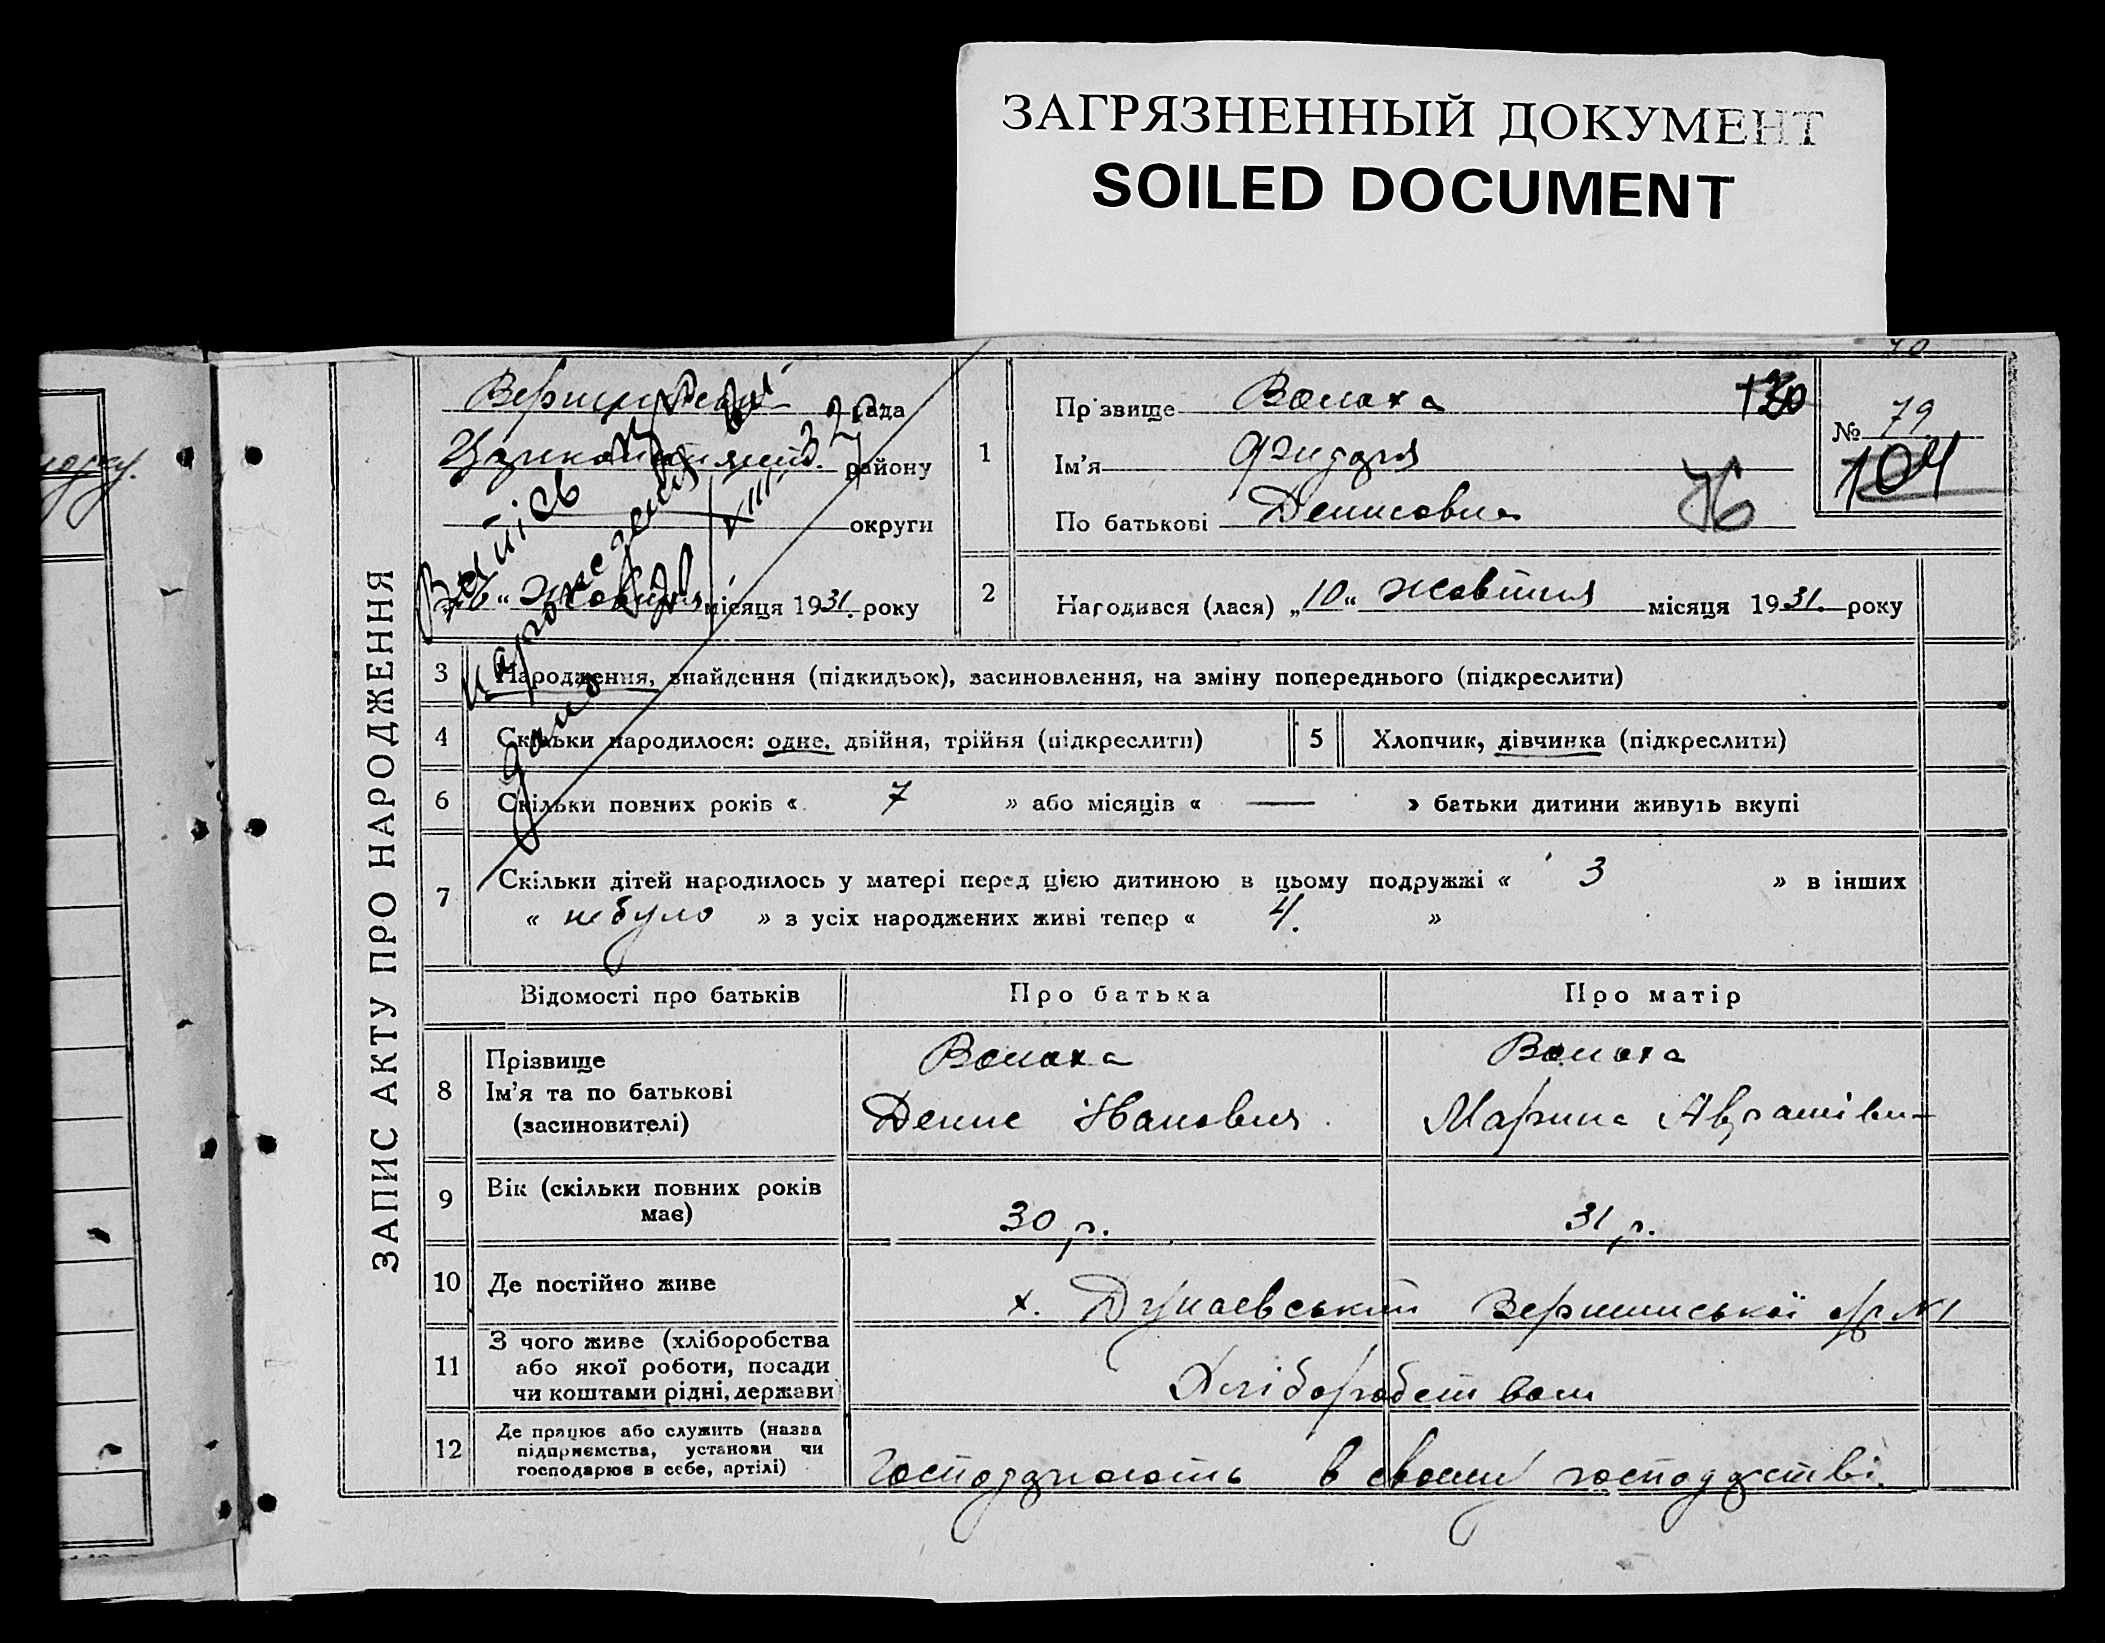 ЗАГРЯЗНЕННЫЙ ДОКУМЕНТ
SOILED DOCUMENT
ЗАПИС АКТУ ПРО НАРОДЖЕННЯ
рада
району
округи
місяця 1931. року
1
Прізвище
Ім'я
По батькові Денисовна
76
№ 79
104
2 Народився (лася) „10“ жовтня місяця 1931. року
3 Народження, знайдення (підкидьок), засиновлення, на зміну попереднього (підкреслити)
4 Скільки народилося: одне, двійня, трійня (підкреслити)
5 Хлопчик, дівчинка (підкреслити)
6 Скільки повних років « 7 » або місяців « — » батьки дитини живуть вкупі
7 Скільки дітей народилось у матері перед цією дитиною в цьому подружжі « 3 » в інших
« небуло » з усіх народжених живі тепер « 4. »
Відомості про батьків Про батька Про матір
8 Прізвище
Ім'я та по батькові
(засиновителі)
Денис Іванович
Марина
9 Вік (скільки повних років
має)
30 р. 31 р.
10 Де постійно живе
х. Дунаевський
11 З чого живе (хліборобства
або якої роботи, посади
чи коштами рідні, держави
Хліборобством
12 Де працює або служить (назва
підприємства, установи чи
господарює в себе, артілі)
Господарюють в своему господарстві.